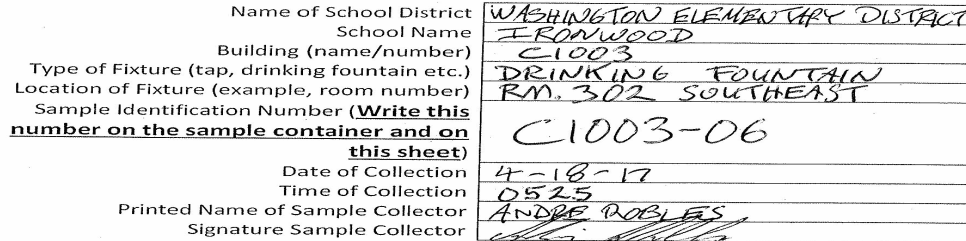 Name of School District WASHINGTON ELEMENTARY DISTRICT
School Name IRONWOOD
Building (name/number) C1003
Type of Fixture (tap, drinking fountain etc.) DRINKING FOUNTAIN
Location of Fixture (example, room number) RM. 302 SOUTHEAST
Sample Identification Number (Write this
number on the sample container and on C1003-06
this sheet)
Date of Collection 4-18-17
Time of Collection 0525
Printed Name of Sample Collector ANDRE ROBLES
Signature Sample Collector